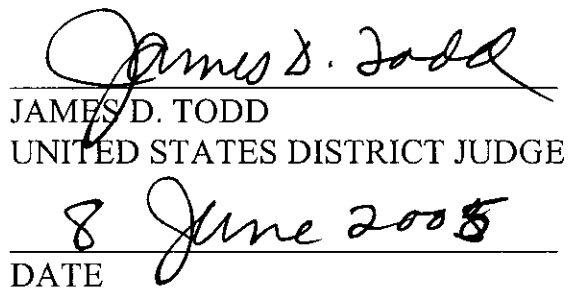 James D. Todd
JAMES D. TODD
UNITED STATES DISTRICT JUDGE
8 June 2005
DATE